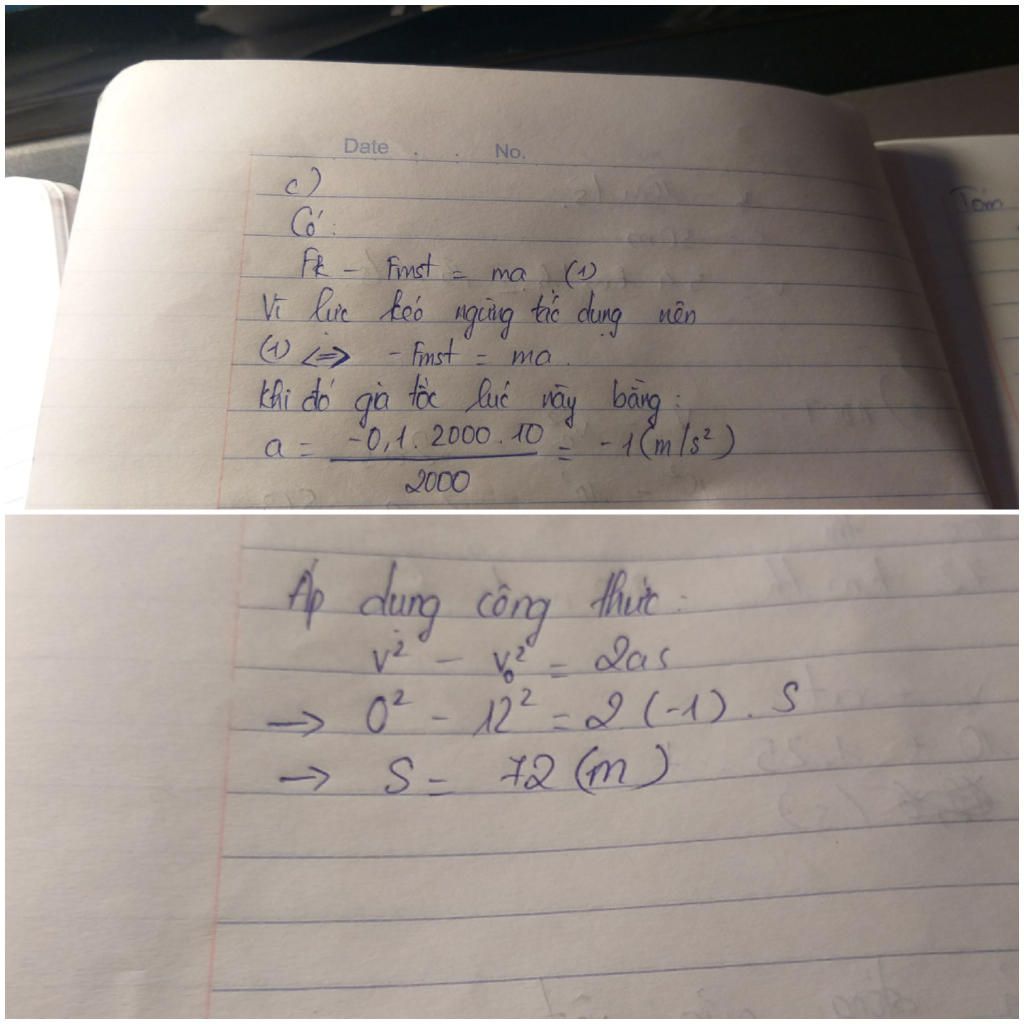 Date . . No.
c)
Có:
Fk - Fmst = ma (1)
Vì lực kéo ngừng tác dụng nên
(1) <=> - Fmst = ma.
Khi đó gia tốc lúc này bằng:
a = -0,1. 2000. 10 / 2000 = -1 (m/s²)
Tóm
Áp dụng công thức:
v² - v₀² = 2as
→ 0² - 12² = 2 (-1) . S
→ S = 72 (m)